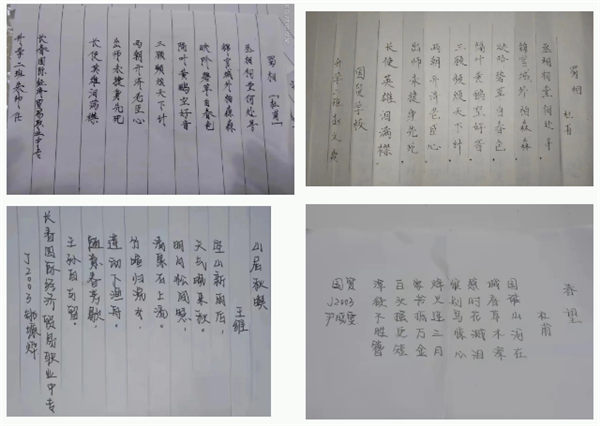 蜀相 (杜甫)
丞相祠堂何处寻
锦官城外柏森森
映阶碧草自春色
隔叶黄鹂空好音
三顾频烦天下计
两朝开济老臣心
出师未捷身先死
长使英雄泪满襟
长春国际经济贸易职业中专
升学二班
蜀相
杜甫
丞相祠堂何处寻
锦官城外柏森森
映阶碧草自春色
隔叶黄鹂空好音
三顾频烦天下计
两朝开济老臣心
出师未捷身先死
长使英雄泪满襟
国贸学校
升学一班
山居秋暝
王维
空山新雨后，
天气晚来秋。
明月松间照，
清泉石上流。
竹喧归浣女，
莲动下渔舟。
随意春芳歇，
王孙自可留。
长春国际经济贸易职业中专
J2003
春望
杜甫
国破山河在
城春草木深
感时花溅泪
恨别鸟惊心
烽火连三月
家书抵万金
白头搔更短
浑欲不胜簪
国贸
J2003